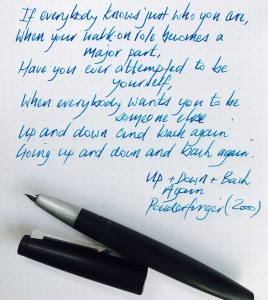 If everybody knows just who you are,
When your walk-on role becomes a
major part,
Have you ever attempted to be
yourself,
When everybody wants you to be
someone else
Up and down and back again
Going up and down and back again.
Up + Down + Back
Again
Powderfinger (2000)